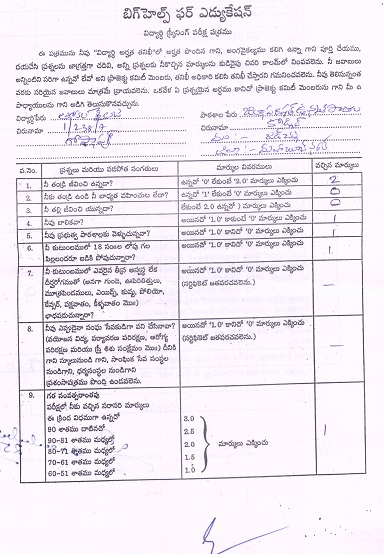 బిగ్‌హెల్ప్ ఫర్ ఎడ్యుకేషన్
విద్యార్థి స్క్రీనింగ్ పరీక్ష పత్రము
ఈ పత్రమును నీవు "విద్యార్థి అర్హత తనిఖీ"లో అర్హత పొందిన గాని, అంగవైకల్యము కలిగి ఉన్నా గాని పూర్తి చేయుము,
దయచేసి ప్రశ్నలను జాగ్రత్తగా చదివి, అన్ని ప్రశ్నలకు నీకొచ్చిన మార్కులను కుడివైపు చివర కాలమ్‌లో నింపవలెను. నీ జవాబులు
అన్నియు సరిగా ఉన్నవో లేదో అని ప్రాజెక్టు కమిటీ మెంబరు, తనిఖీ అధికారి కలిసి తనిఖీ చేస్తారని గమనించవలెను. నీవు తెలిసినంత
వరకు సరియైన జవాబులు మాత్రమే వ్రాయవలెను. ఒకవేళ ఏ ప్రశ్నయైన అర్థము కానిచో ప్రాజెక్ట్ కమిటీ మెంబరును గాని మీ ఉ
పాధ్యాయులను గాని అడిగి తెలుసుకొనవచ్చును.
విద్యార్థిపేరు
పాఠశాల పేరు
చిరునామా 1/238/7
చిరునామా
వ.నెం. ప్రశ్నలు మరియు పదపోత సంగతులు మార్కు వివరములు వచ్చిన మార్కులు
1. నీ తండ్రి జీవించి ఉన్నాడా? ఉన్నచో '0' లేకుంటే '2.0' మార్కులు ఎక్కించు 2
2. నీకు తండ్రి ఉండి నీ బాధ్యత వహించుట లేదా? ఉన్నచో '1' లేకుంటే '0' మార్కులు ఎక్కించు 0
3. నీ తల్లి జీవించి యున్నదా? లేకుంటే 2.0 ఉన్నచో 0 మార్కులు ఎక్కించు 0
4. నీవు బాలికవా? అయినచో '1.0' కాకుంటే '0' మార్కులు ఎక్కించు 1
5. నీవు ప్రభుత్వ పాఠశాలకు వెళ్ళుచున్నావా? అయినచో '1.0' కానిచో '0' మార్కులు ఎక్కించు 1
6. నీ కుటుంబములో 18 సం॥ల లోపు గల పిల్లలందరూ బడికి పోవుచున్నారా? అయినచో '1.0' కానిచో '0' మార్కులు ఎక్కించు 1
7. నీ కుటుంబములో ఎవరైన తీవ్ర అస్వస్థత లేక
దీర్ఘరోగముతో (అనగా గుండె, ఊపిరితిత్తులు,
మూత్రపిండములు, ఎయిడ్స్, కుష్టు, పోలియో,
కేన్సర్, పక్షవాతం, కీళ్ళవాతం మొ॥)
బాధపడుచున్నారా?
అయినచో '1.0' కానిచో '0' మార్కులు ఎక్కించు
(సర్టిఫికెట్ జతపరచవలెను.)
—
8. నీవు ఎప్పుడైనా సంఘ సేవకుడిగా పని చేసినావా?
(వయోజన విద్య, పర్యావరణ పరిరక్షణ, ఆరోగ్య
పరిరక్షణ మరియు స్త్రీ శిశు సంక్షేమం మొ॥) దీనికి
గాని స్కూలునుండి గాని, సాంఘిక సేవ సంస్థల
నుండిగాని, ధర్మసంస్థల నుండిగాని
ప్రశంసాపత్రము పొంది ఉండవలెను.
అయినచో '1.0' కానిచో '0' మార్కులు ఎక్కించు
(సర్టిఫికెట్ జతపరచవలెను.)
—
9. గత సంవత్సరాంతపు
పరీక్షలో నీకు వచ్చిన సరాసరి మార్కులు
ఈ క్రింద విధముగా ఉన్నచో
90 శాతము దాటినచో 3.0
90-81 శాతము మధ్యలో 2.5
80-71 శాతము మధ్యలో 2.0
70-61 శాతము మధ్యలో 1.5
60-51 శాతము మధ్యలో 1.0
మార్కులు ఎక్కించు
1